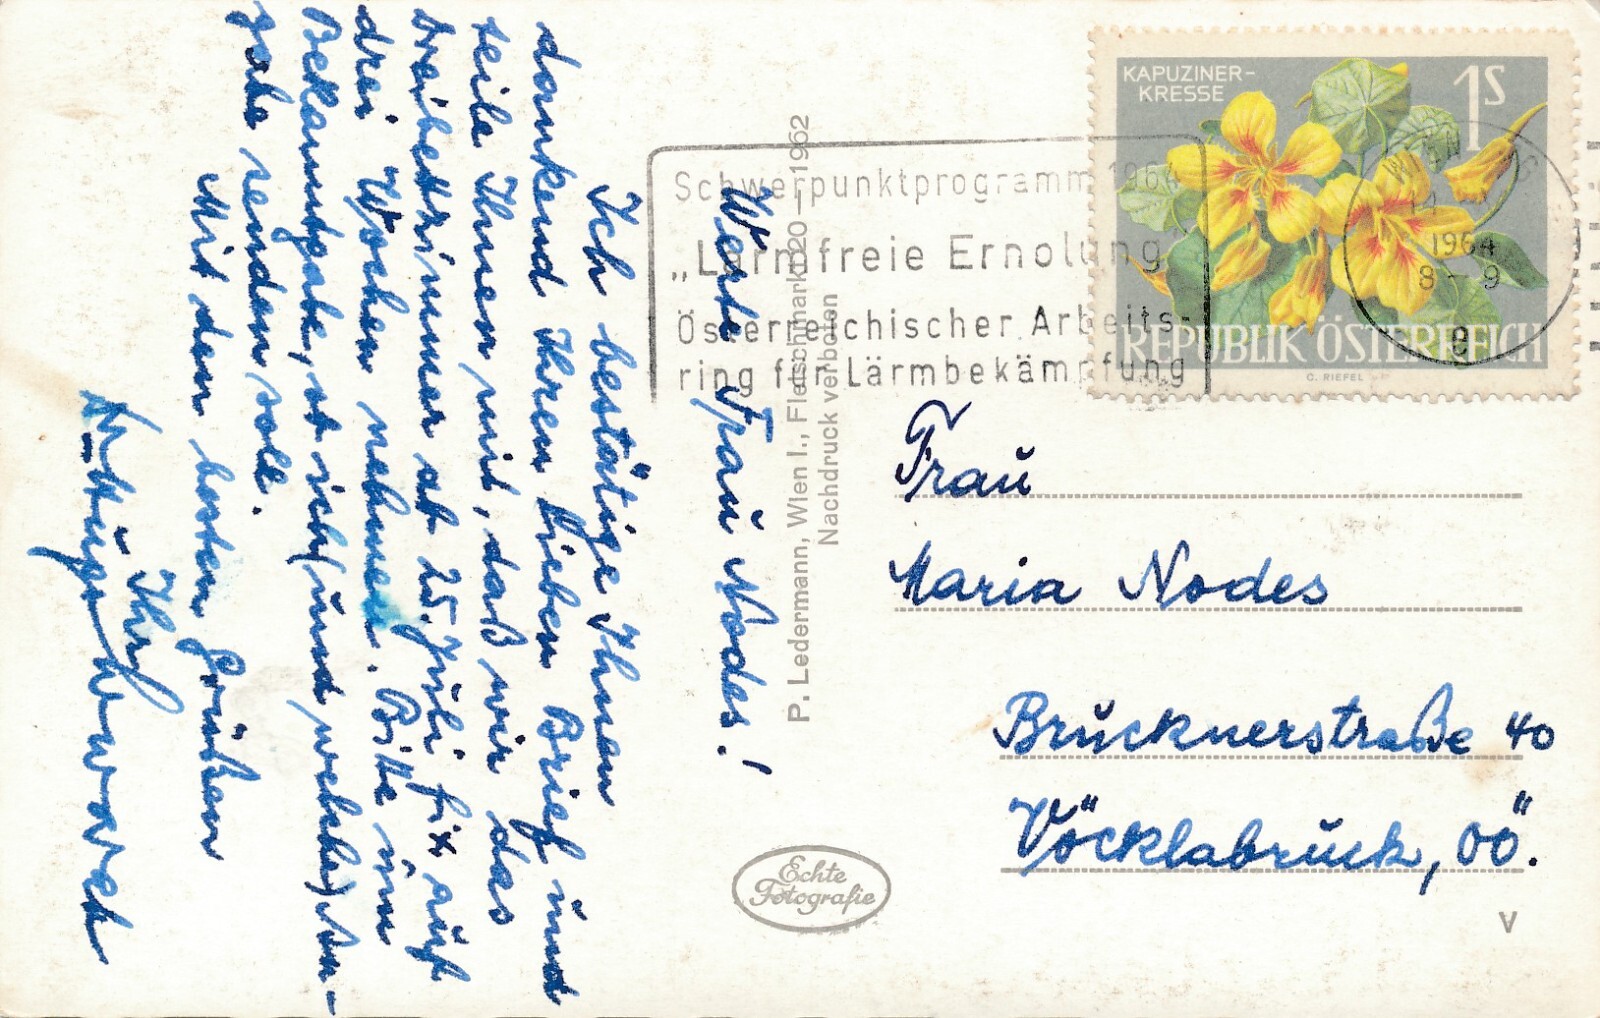 Werte Frau Nodes!
Ich bestätige Ihnen
dankend Ihren lieben Brief und
teile Ihnen mit, daß wir das
Dreibettzimmer ab 25. Juli fix auf
drei Wochen nehmen. Bitte um
Bekanntgabe, ob ich (und welche) An-
gabe senden soll.
Mit den besten Grüßen
Ihr
P. Ledermann, Wien I., Fleischmarkt 20—1962
Nachdruck verboten
Echte
Fotografie
Schwerpunktprogramm 1964
„Lärmfreie Erholung
Österreichischer Arbeits-
ring für Lärmbekämpfung
KAPUZINER-
KRESSE
1S
REPUBLIK ÖSTERREICH
C. RIEFEL
1964
8-9
e
Frau
Maria Nodes
Brucknerstraße 40
Vöcklabruck, OÖ.
V